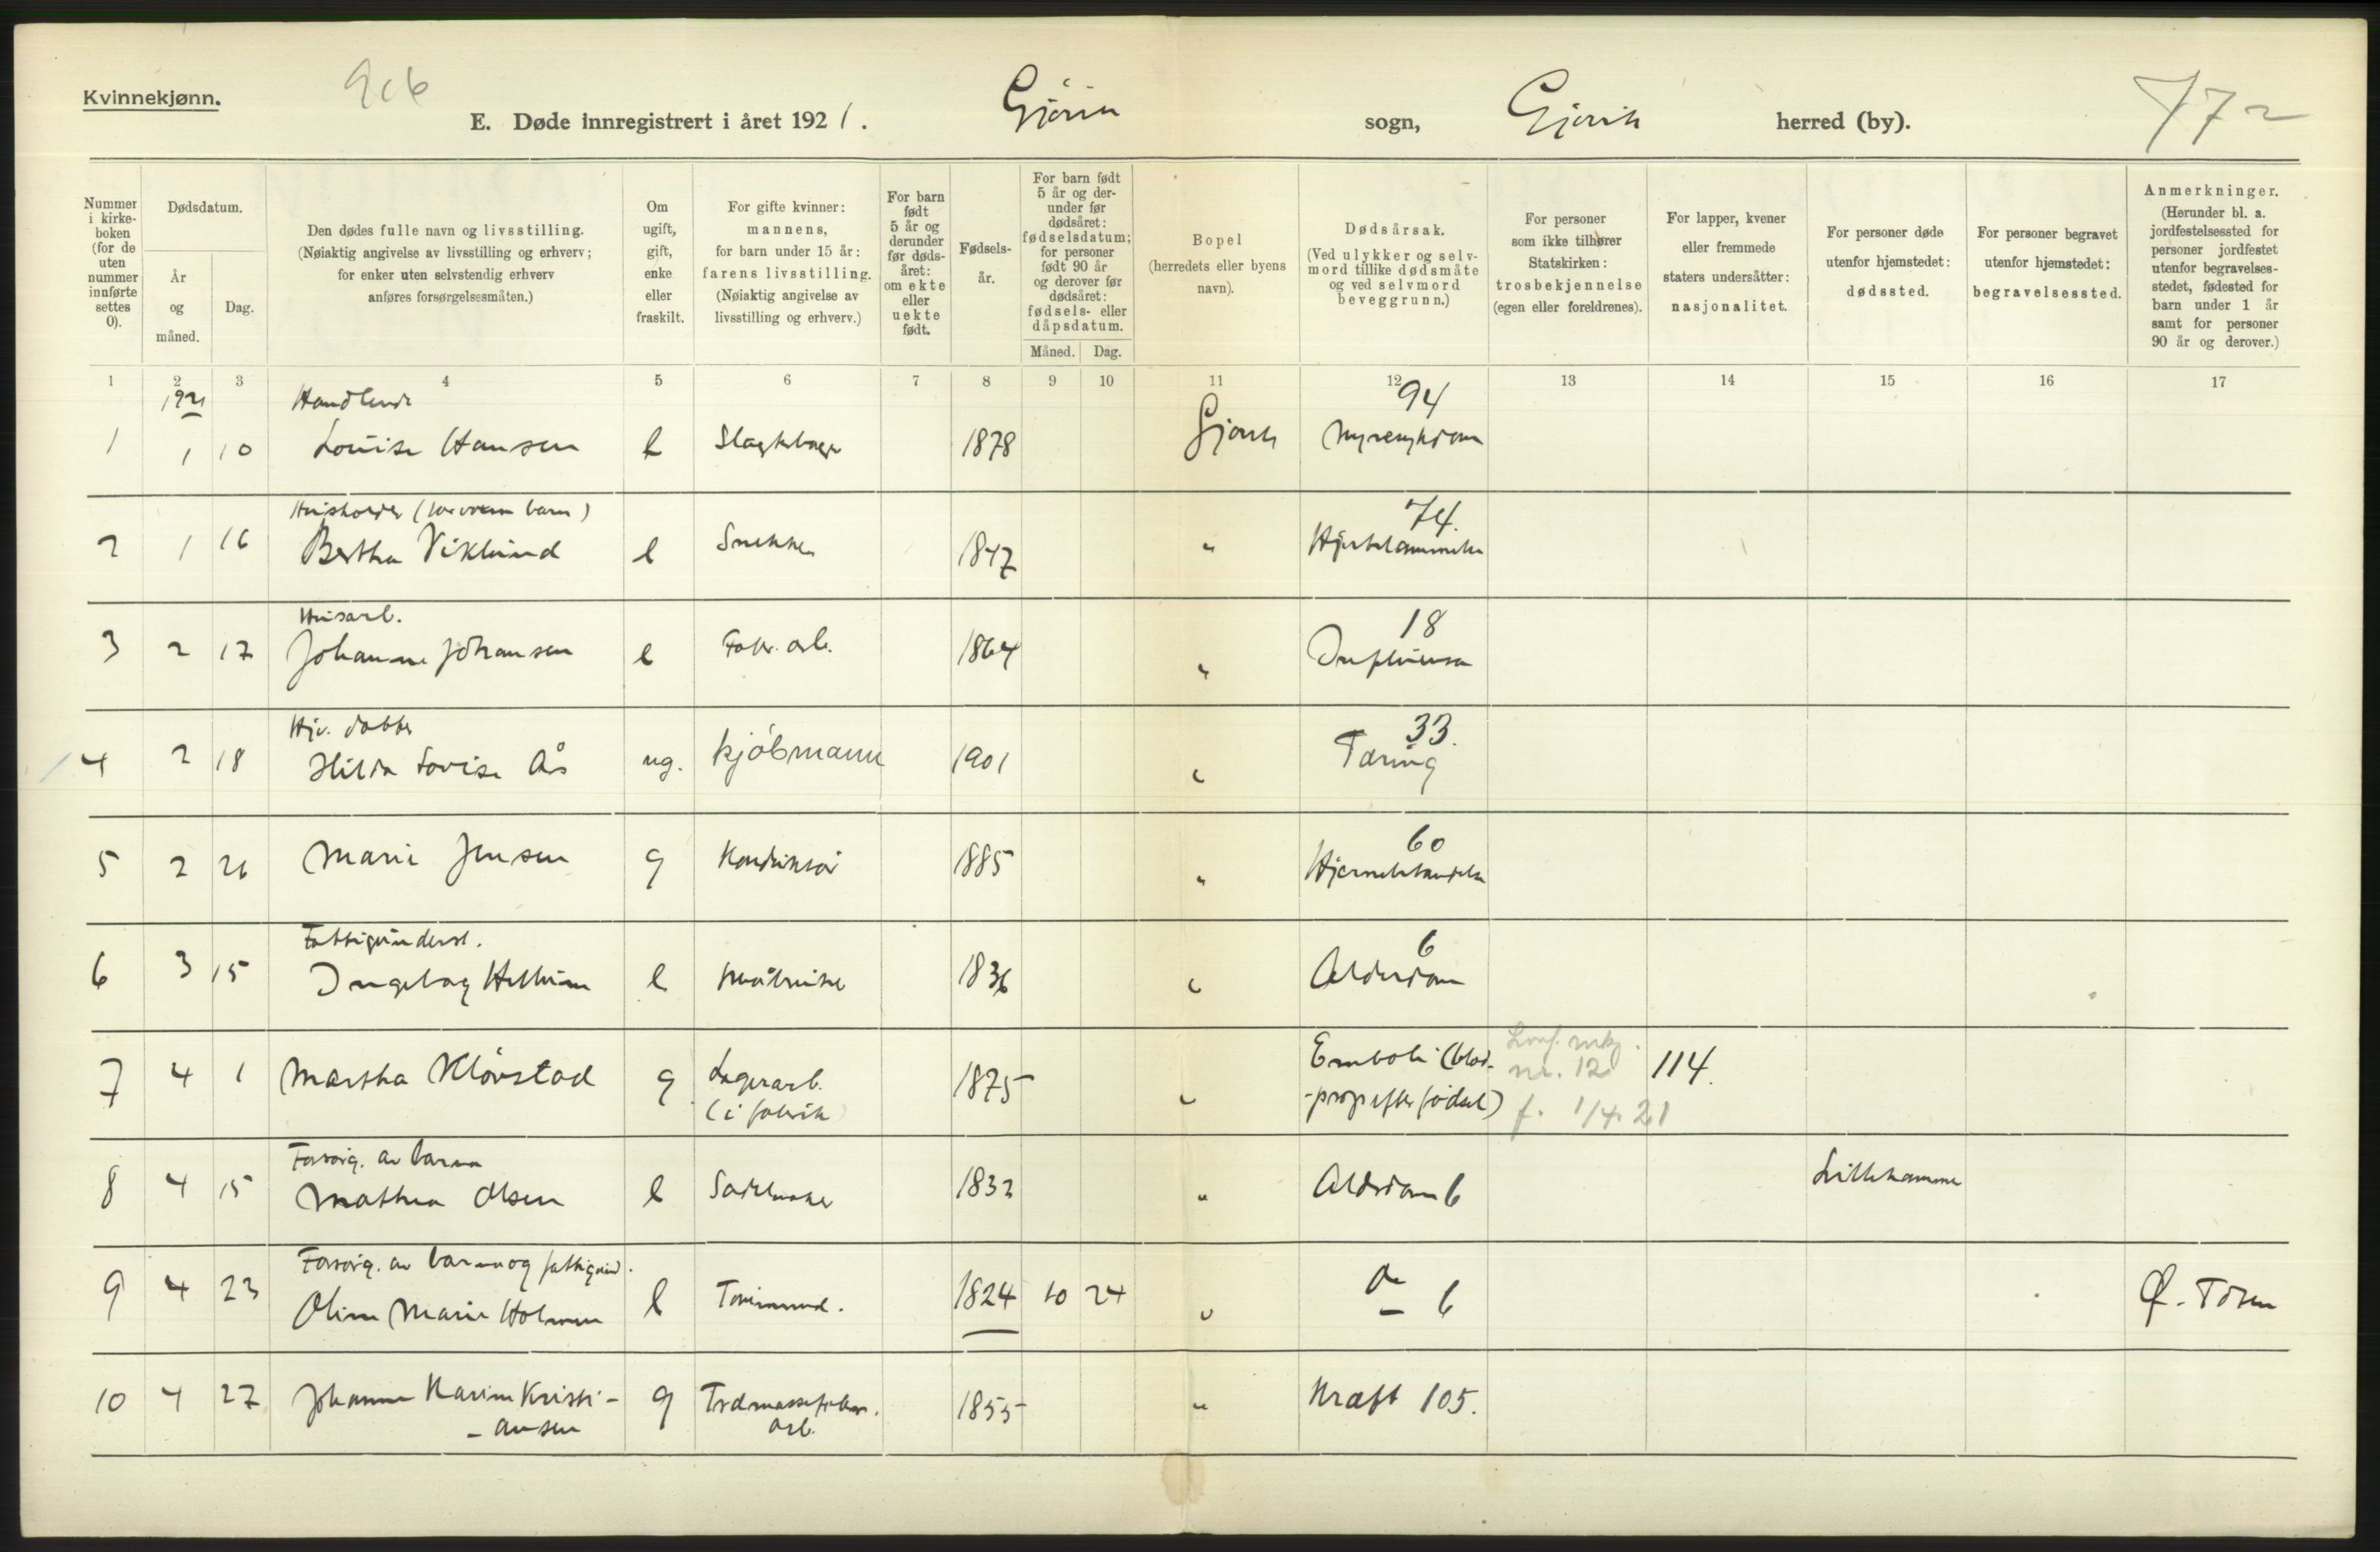 Kvinnekjønn.
E. Døde innregistrert i året 1921.
Gjøvik
sogn,
Gjøvik
herred (by).
Nummer
i kirke-
boken
(for de
uten
nummer
innførte
settes
0).
Dødsdatum.
År
og
måned.
Dag.
Den dødes fulle navn og livsstilling.
(Nøiaktig angivelse av livsstilling og erhverv;
for enker uten selvstendig erhverv
anføres forsørgelsesmåten.)
Om
ugift,
gift,
enke
eller
fraskilt.
For gifte kvinner:
mannens,
for barn under 15 år:
farens livsstilling.
(Nøiaktig angivelse av
livsstilling og erhverv.)
For barn
født
5 år og
derunder
før døds-
året:
om ekte
eller
uekte
født.
Fødsels-
år.
For barn født
5 år og der-
under før
dødsåret:
fødselsdatum;
for personer
født 90 år
og derover før
dødsåret:
fødsels- eller
dåpsdatum.
Måned. Dag.
Bopel
(herredets eller byens
navn).
Dødsårsak.
(Ved ulykker og selv-
mord tillike dødsmåte
og ved selvmord
beveggrunn.)
For personer
som ikke tilhører
Statskirken:
trosbekjennelse
(egen eller foreldrenes).
For lapper, kvener
eller fremmede
staters undersåtter:
nasjonalitet.
For personer døde
utenfor hjemstedet:
dødssted.
For personer begravet
utenfor hjemstedet:
begravelsessted.
Anmerkninger.
(Herunder bl. a.
jordfestelsessted for
personer jordfestet
utenfor begravelses-
stedet, fødested for
barn under 1 år
samt for personer
90 år og derover.)
1 2 3 4 5 6 7 8 9 10 11 12 13 14 15 16 17
1921 Handlende 94
1 1 10 Louise Hansen e 1878 Gjøvik Nyresykdom
74.
2 1 16 Bertha Viklund e Snekker 1847 " Hjertelammelse
Husarb. 18
3 2 17 Johanne Johansen e Fabr. arb. 1864 " Influensa
33.
4 2 18 Hilda Lovise Ås ug. kjøbmann 1901 " Tæring
60
5 2 26 Marie Jensen g Konduktør 1885 " Hjernebetændelse
6
6 3 15 Ingeborg e 1836 " Alderdom
7 4 1 Martha Kløvstad g Lagerarb. 1875 " Emboli (blod- nr. 12 114.
(i fabrik) -prop efter fødsel) f. 1/4 21
Forsørg. av barna
8 4 15 Mathea Olsen e Sadelmaker 1832 " Alderdom 6 Lillehammer
Forsørg. av barna og
9 4 23 Oline Marie Holmen e 1824 10 24 " do 6
10 4 27 Johanne Karine Kristi- g Tremassefabr. 1855 " Kræft 105.
- ansen arb.